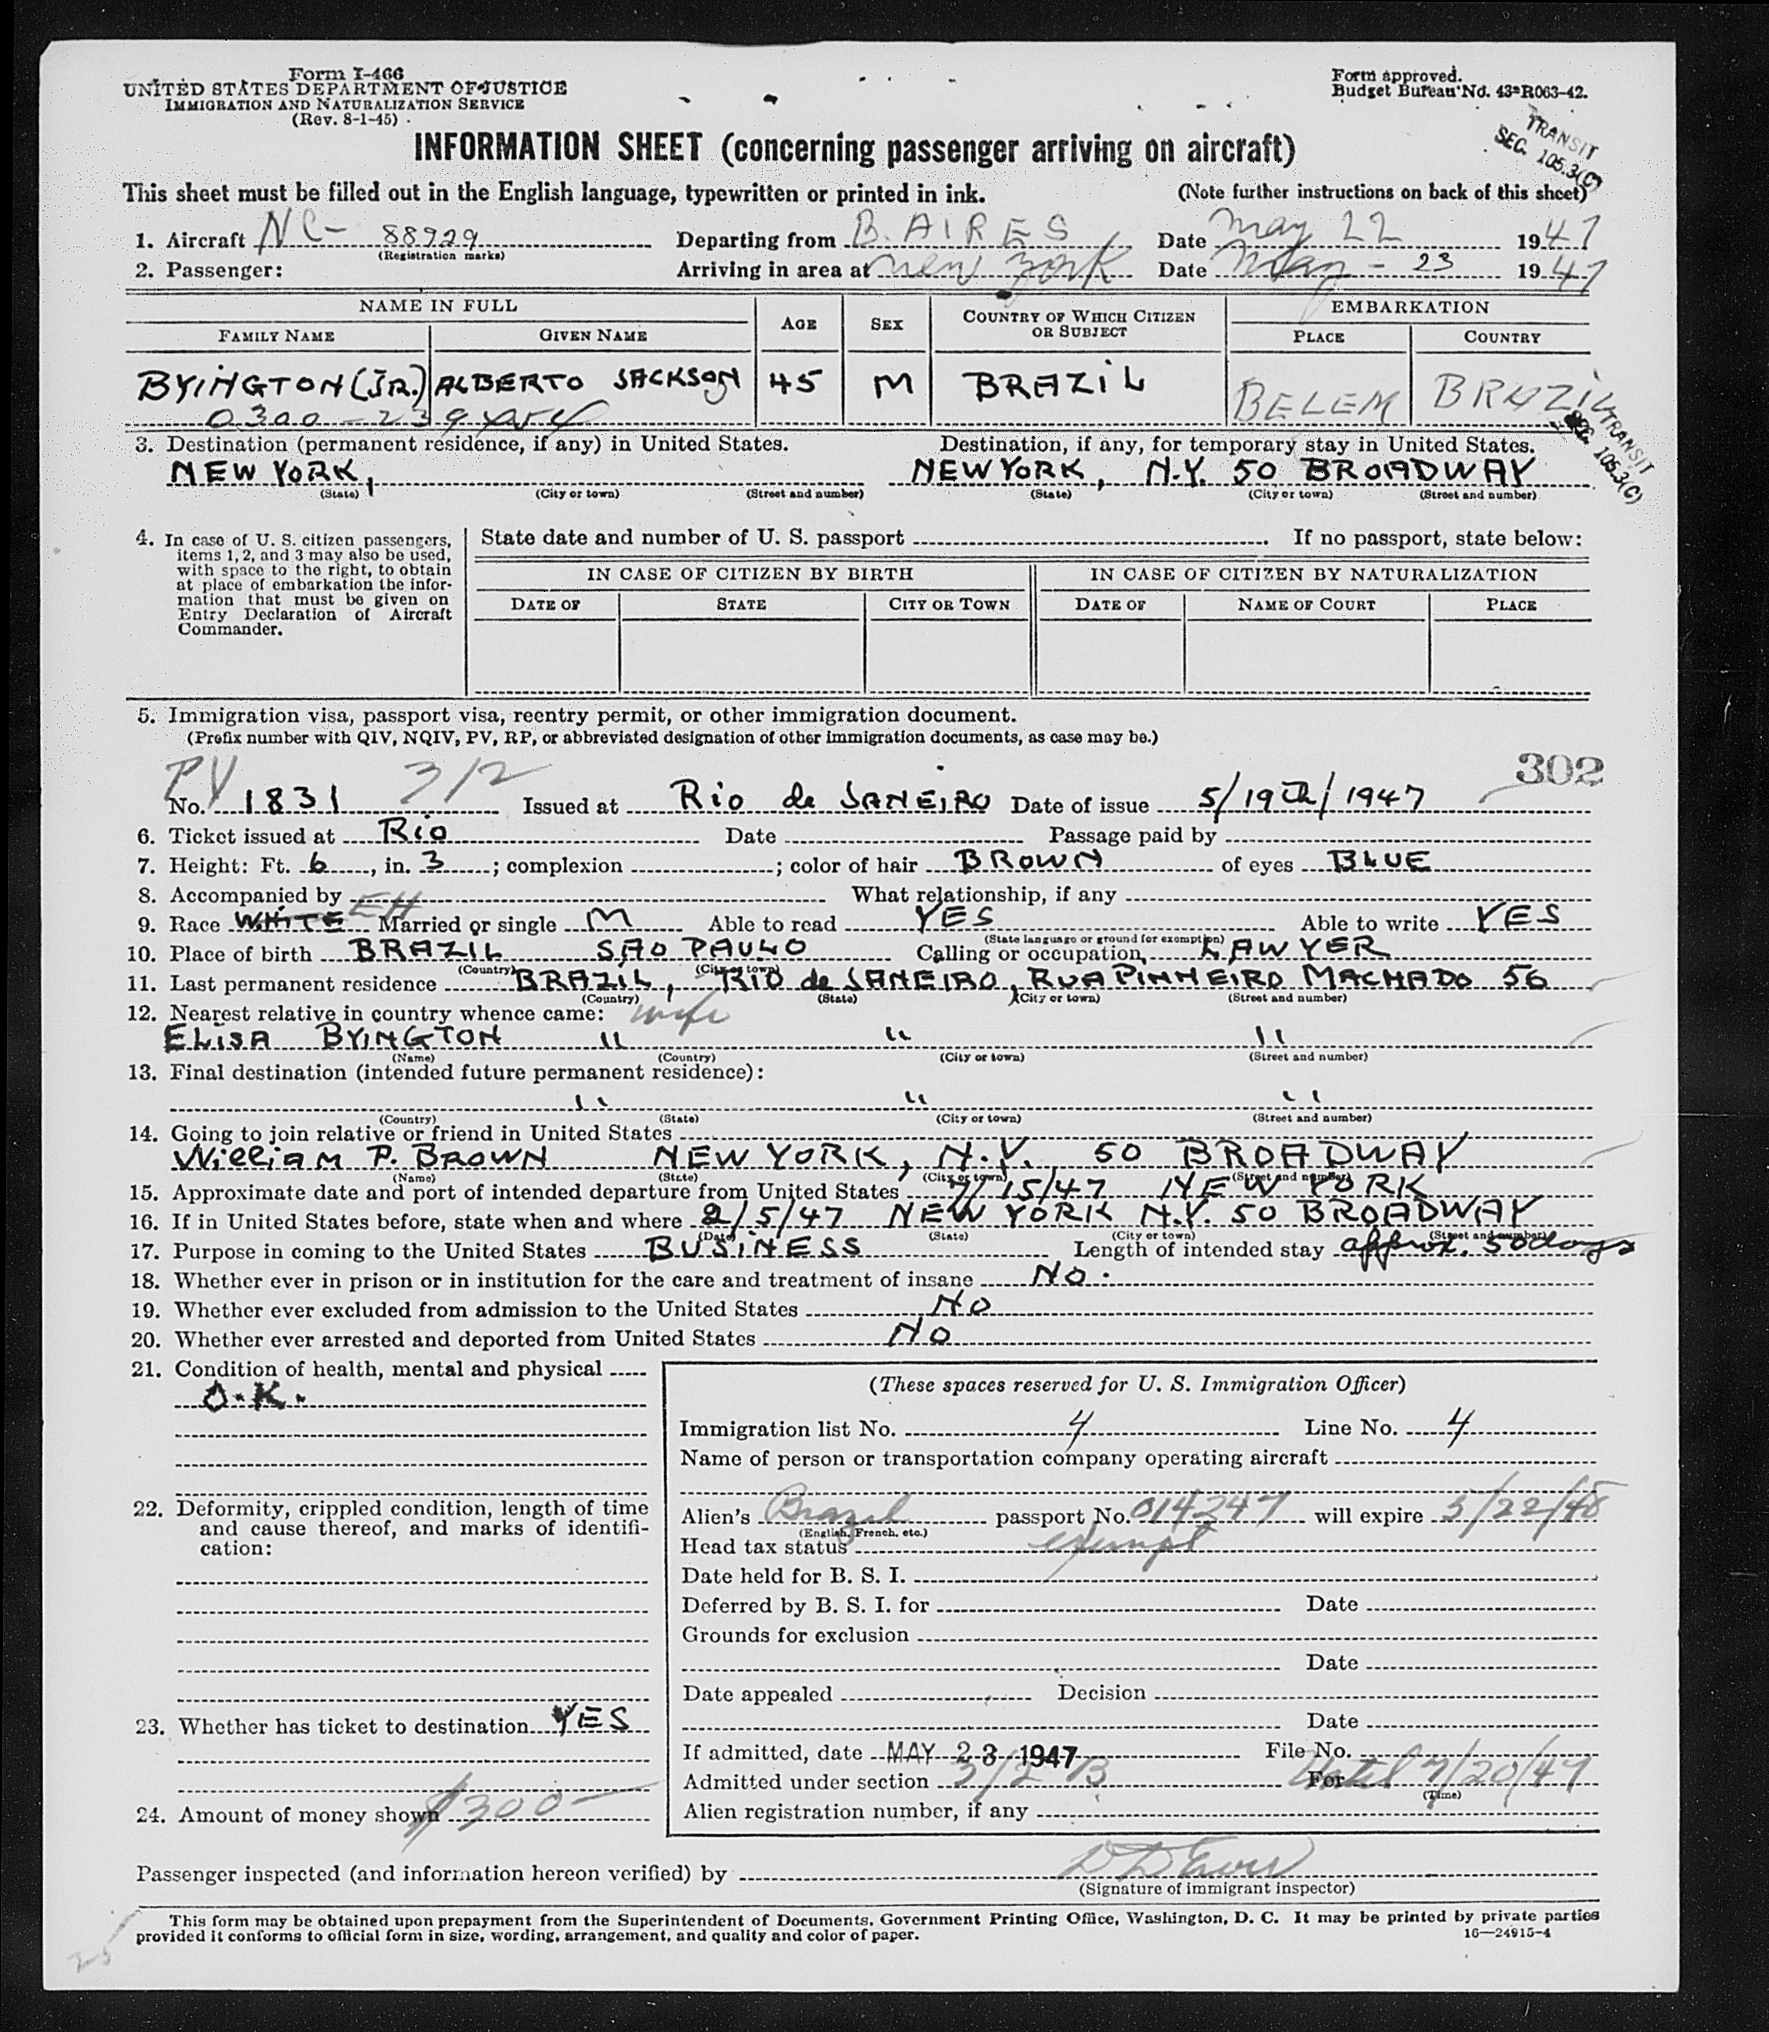 Form I-466
UNITED STATES DEPARTMENT OF JUSTICE
IMMIGRATION AND NATURALIZATION SERVICE
(Rev. 8-1-45)
Form approved.
Budget Bureau No. 43-R063-42.
TRANSIT
SEC. 105.3(C)
INFORMATION SHEET (concerning passenger arriving on aircraft)
This sheet must be filled out in the English language, typewritten or printed in ink. (Note further instructions on back of this sheet)
1. Aircraft NC- 88929 Departing from B. AIRES Date May 22 1947
(Registration marks)
2. Passenger: Arriving in area at New York Date May - 23 1947
NAME IN FULL AGE SEX COUNTRY OF WHICH CITIZEN OR SUBJECT EMBARKATION
FAMILY NAME GIVEN NAME PLACE COUNTRY
BYINGTON (JR.) ALBERTO JACKSON 45 M BRAZIL BELEM BRAZIL
0300-23
TRANSIT
SEC. 105.3(C)
3. Destination (permanent residence, if any) in United States. Destination, if any, for temporary stay in United States.
NEW YORK, NEW YORK, N.Y. 50 BROADWAY
(State) (City or town) (Street and number) (State) (City or town) (Street and number)
4. In case of U. S. citizen passengers, items 1, 2, and 3 may also be used, with space to the right, to obtain at place of embarkation the information that must be given on Entry Declaration of Aircraft Commander.
State date and number of U. S. passport . If no passport, state below:
IN CASE OF CITIZEN BY BIRTH IN CASE OF CITIZEN BY NATURALIZATION
DATE OF STATE CITY OR TOWN DATE OF NAME OF COURT PLACE
5. Immigration visa, passport visa, reentry permit, or other immigration document.
(Prefix number with QIV, NQIV, PV, RP, or abbreviated designation of other immigration documents, as case may be.)
302
PV 3/2
No. 1831 Issued at Rio de JANEIRO Date of issue 5/19th/1947
6. Ticket issued at Rio Date Passage paid by
7. Height: Ft. 6, in. 3; complexion ; color of hair BROWN of eyes BLUE
8. Accompanied by What relationship, if any
9. Race WHITE EH Married or single M Able to read YES Able to write YES
(State language or ground for exemption)
10. Place of birth BRAZIL SAO PAULO Calling or occupation LAWYER
(Country) (City or town)
11. Last permanent residence BRAZIL, RIO de JANEIRO, RUA PINHEIRO MACHADO 56
(Country) (State) (City or town) (Street and number)
12. Nearest relative in country whence came: wife
ELISA BYINGTON " " "
(Name) (Country) (City or town) (Street and number)
13. Final destination (intended future permanent residence):
" " "
(Country) (State) (City or town) (Street and number)
14. Going to join relative or friend in United States
WILLIAM P. BROWN NEW YORK, N.Y. 50 BROADWAY
(Name) (State) (City or town) (Street and number)
15. Approximate date and port of intended departure from United States 7/15/47 NEW YORK
16. If in United States before, state when and where 2/5/47 NEW YORK N.Y. 50 BROADWAY
(Date) (State) (City or town) (Street and number)
17. Purpose in coming to the United States BUSINESS Length of intended stay approx. 50 days
18. Whether ever in prison or in institution for the care and treatment of insane NO.
19. Whether ever excluded from admission to the United States NO
20. Whether ever arrested and deported from United States NO
21. Condition of health, mental and physical
O.K.
22. Deformity, crippled condition, length of time and cause thereof, and marks of identification:
23. Whether has ticket to destination YES
24. Amount of money shown $300-
(These spaces reserved for U. S. Immigration Officer)
Immigration list No. 4 Line No. 4
Name of person or transportation company operating aircraft
Alien's Brazil passport No. 014247 will expire 5/22/48
(English, French, etc.)
Head tax status exempt
Date held for B. S. I.
Deferred by B. S. I. for Date
Grounds for exclusion
Date
Date appealed Decision
Date
If admitted, date MAY 23 1947 File No.
Admitted under section 3/2 B For until 7/20/47
(Time)
Alien registration number, if any
Passenger inspected (and information hereon verified) by
(Signature of immigrant inspector)
This form may be obtained upon prepayment from the Superintendent of Documents, Government Printing Office, Washington, D. C. It may be printed by private parties
provided it conforms to official form in size, wording, arrangement, and quality and color of paper. 16—24915-4